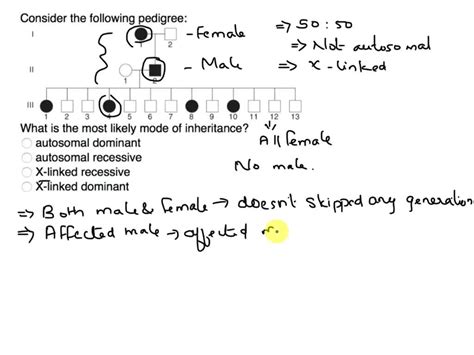 Consider the following pedigree:
I
1 2
- Female
⇒ 50 : 50
⇒ Not autosomal
II
1 2
- Male
⇒ X - linked
III
1 2 3 4 5 6 7 8 9 10 11 12 13
What is the most likely mode of inheritance?
All female
autosomal dominant
autosomal recessive
No male.
X-linked recessive
X-linked dominant
⇒ Both male & Female → doesn't skipped any generation
⇒ Affected male → affected